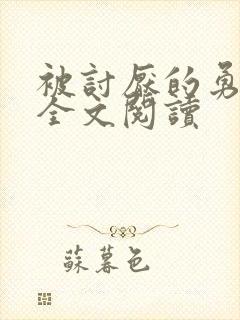 被討厭的勇
全文閱讀
蘇暮色